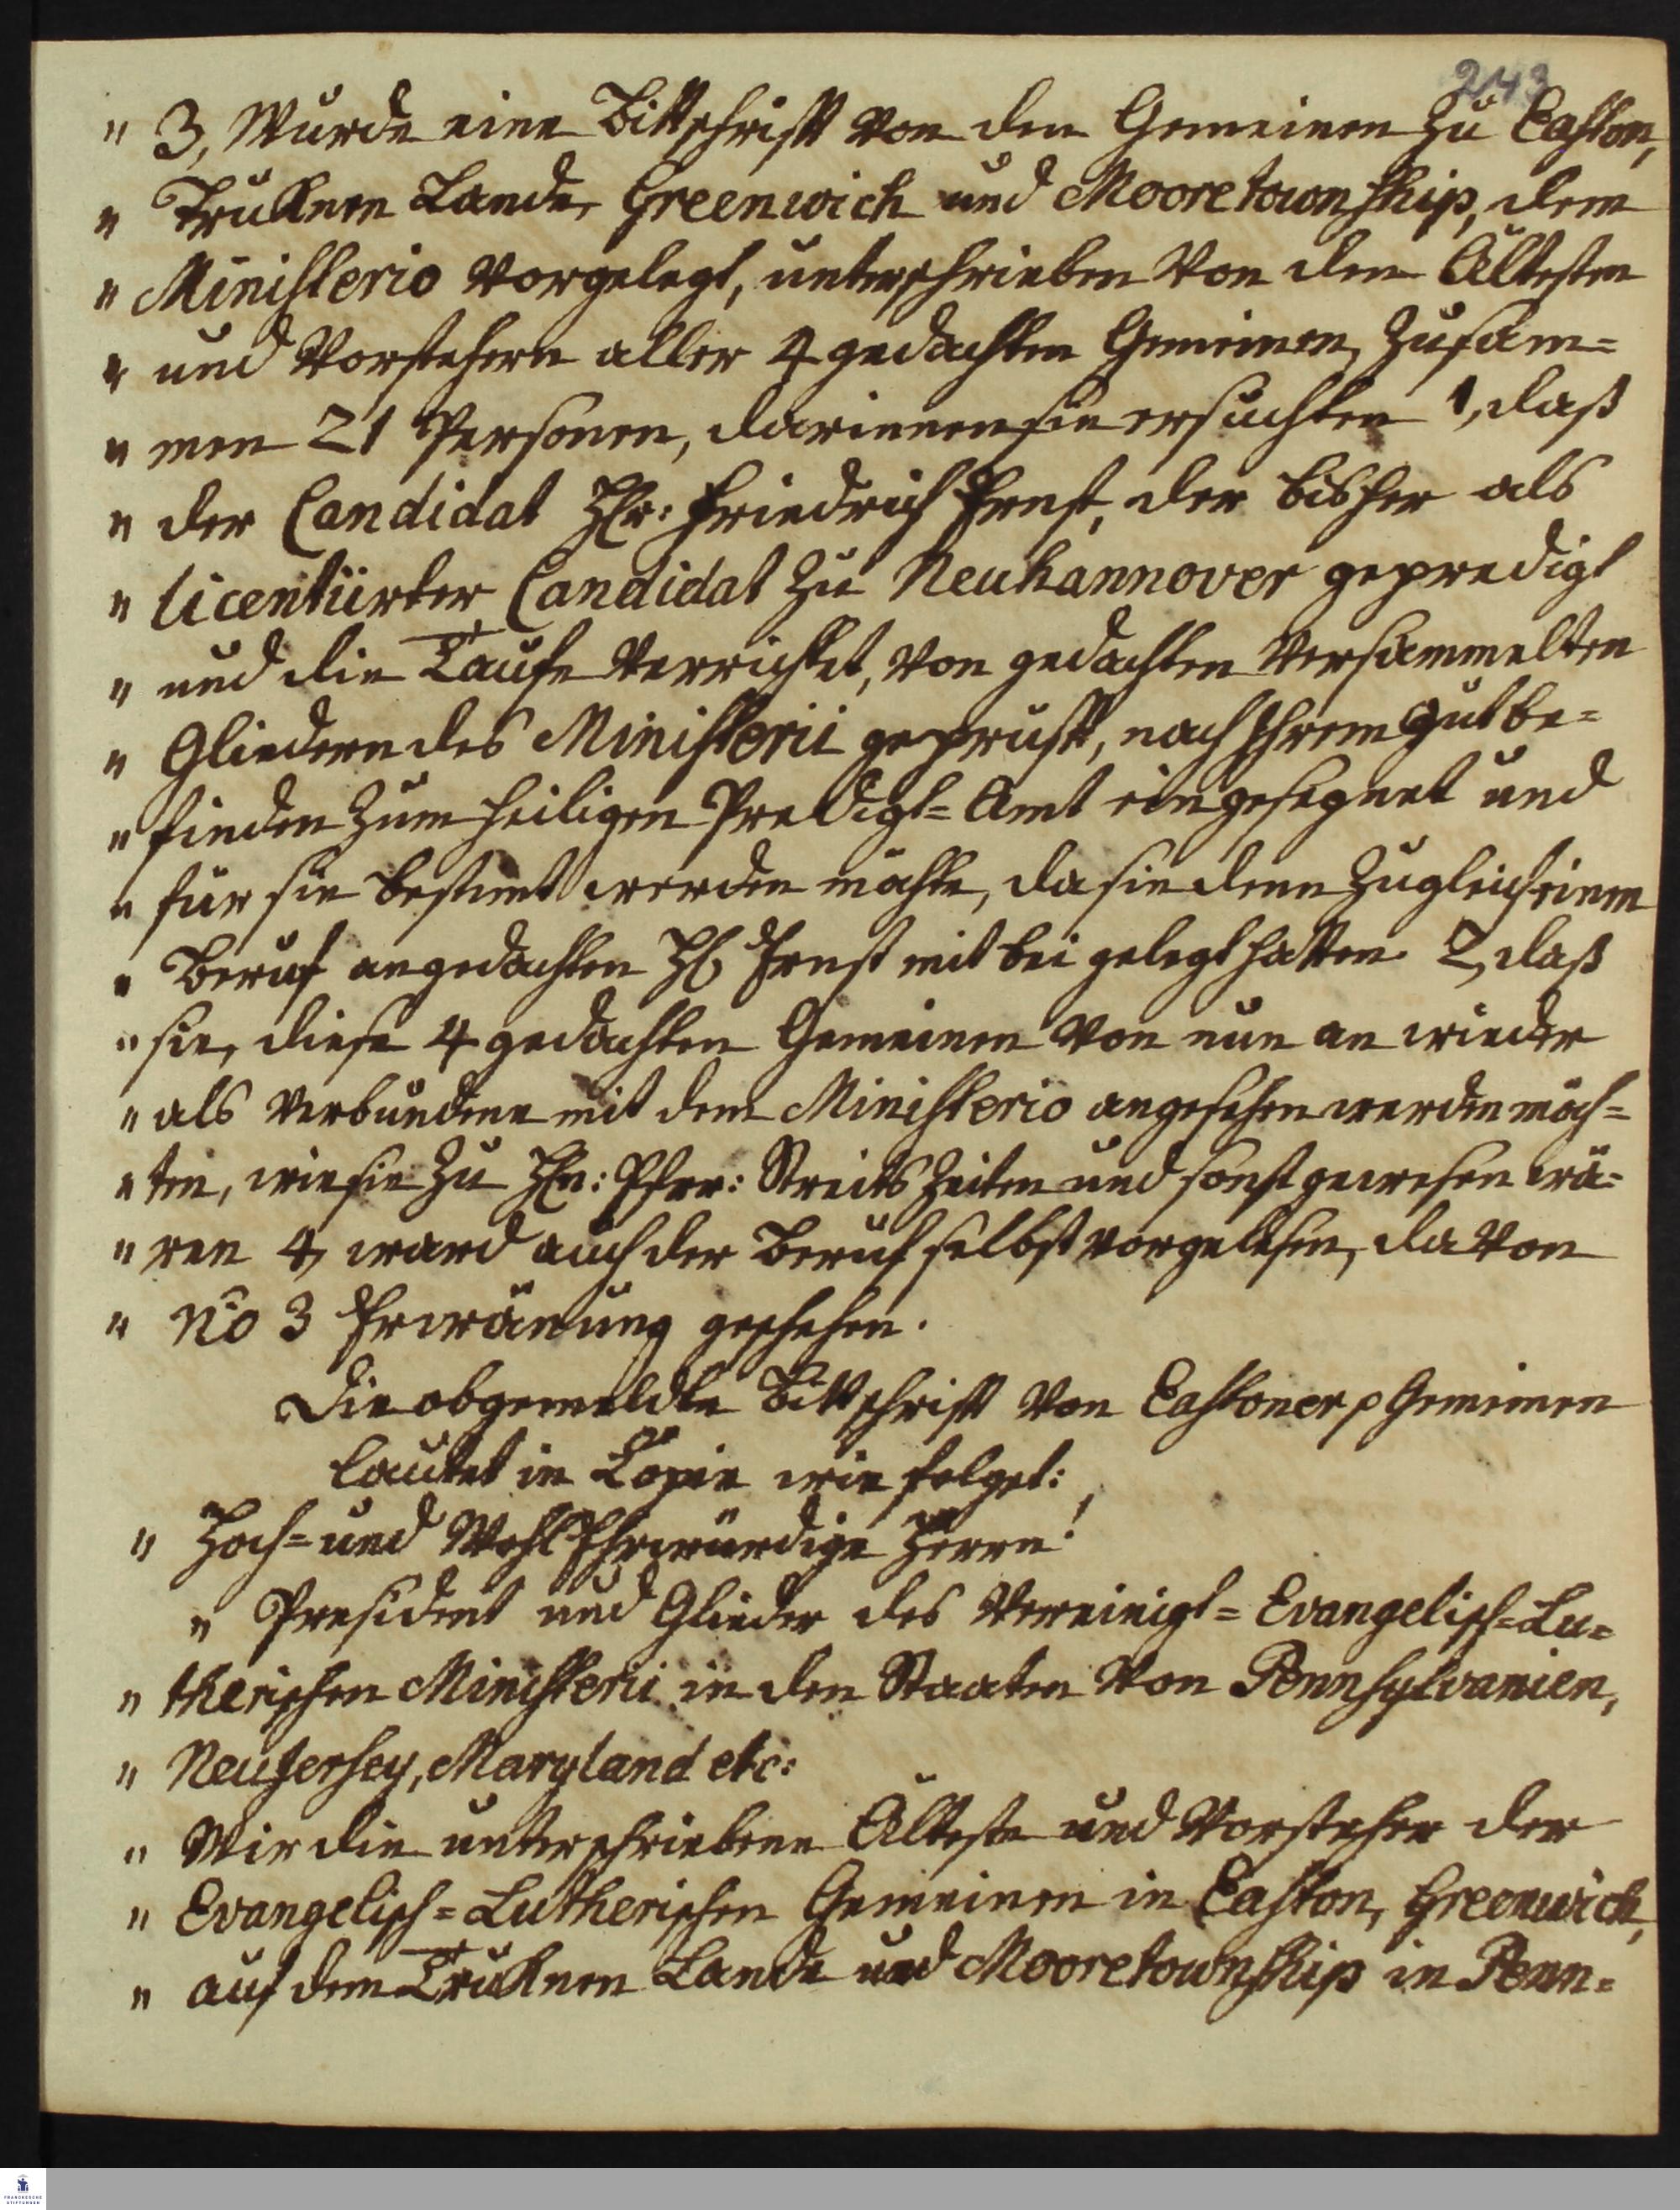 243
" 3, Wurde eine Bittschrift von den Gemeinen zu Easton,
" Truknen Lande, Greenwich und Mooretownship, dem
" Ministerio vorgelegt, unterschrieben von den Ältesten
" und Vorstehern aller 4 gedachten Gemeinen, zusam-
" men 21 Personen, darinnen sie ersuchten 1, daß
" der Candidat Hr: Friedrich Ernst, der bisher als
" licentiirter Candidat zu Neuhannover gepredigt
" und die Taufe verrichtet, von gedachten versammelten
" Gliedern des Ministerii geprüft, nach Ihrem Gutbe-
" finden zum heiligen Predigt-Amt eingesegnet und
" für sie bestimt werden möchte, da sie denn zugleich einen
" Beruf an gedachten H. Ernst mit bei gelegt hatten. 2, daß
" sie, diese 4 gedachten Gemeinen von nun an wieder
" als verbundene mit dem Ministerio angesehen werden möch-
" ten, wie sie zu Hn: Pfrr: Streits Zeiten und sonst gewesen wä-
" ren 4, ward auch der Beruf selbst vorgelesen, davon
" No 3 Erwänung geschehen.
Die obgemeldte Bittschrift von Eastoner p Gemeinen
lautet in Copie wie folget:
" Hoch- und WohlEhrwürdige Herrn!
" President und Glieder des Vereinigt-Evangelisch-Lu-
" therischen Ministerii in den Staaten von Pennsylvanien,
" NeuJersey, Maryland etc:
" Wir die unterschriebene Älteste und Vorsteher der
" Evangelisch-Lutherischen Gemeinen in Easton, Greenwich,
" auf dem Truknen Lande und Mooretownship in Penn-
FRANCKESCHE
STIFTUNGEN